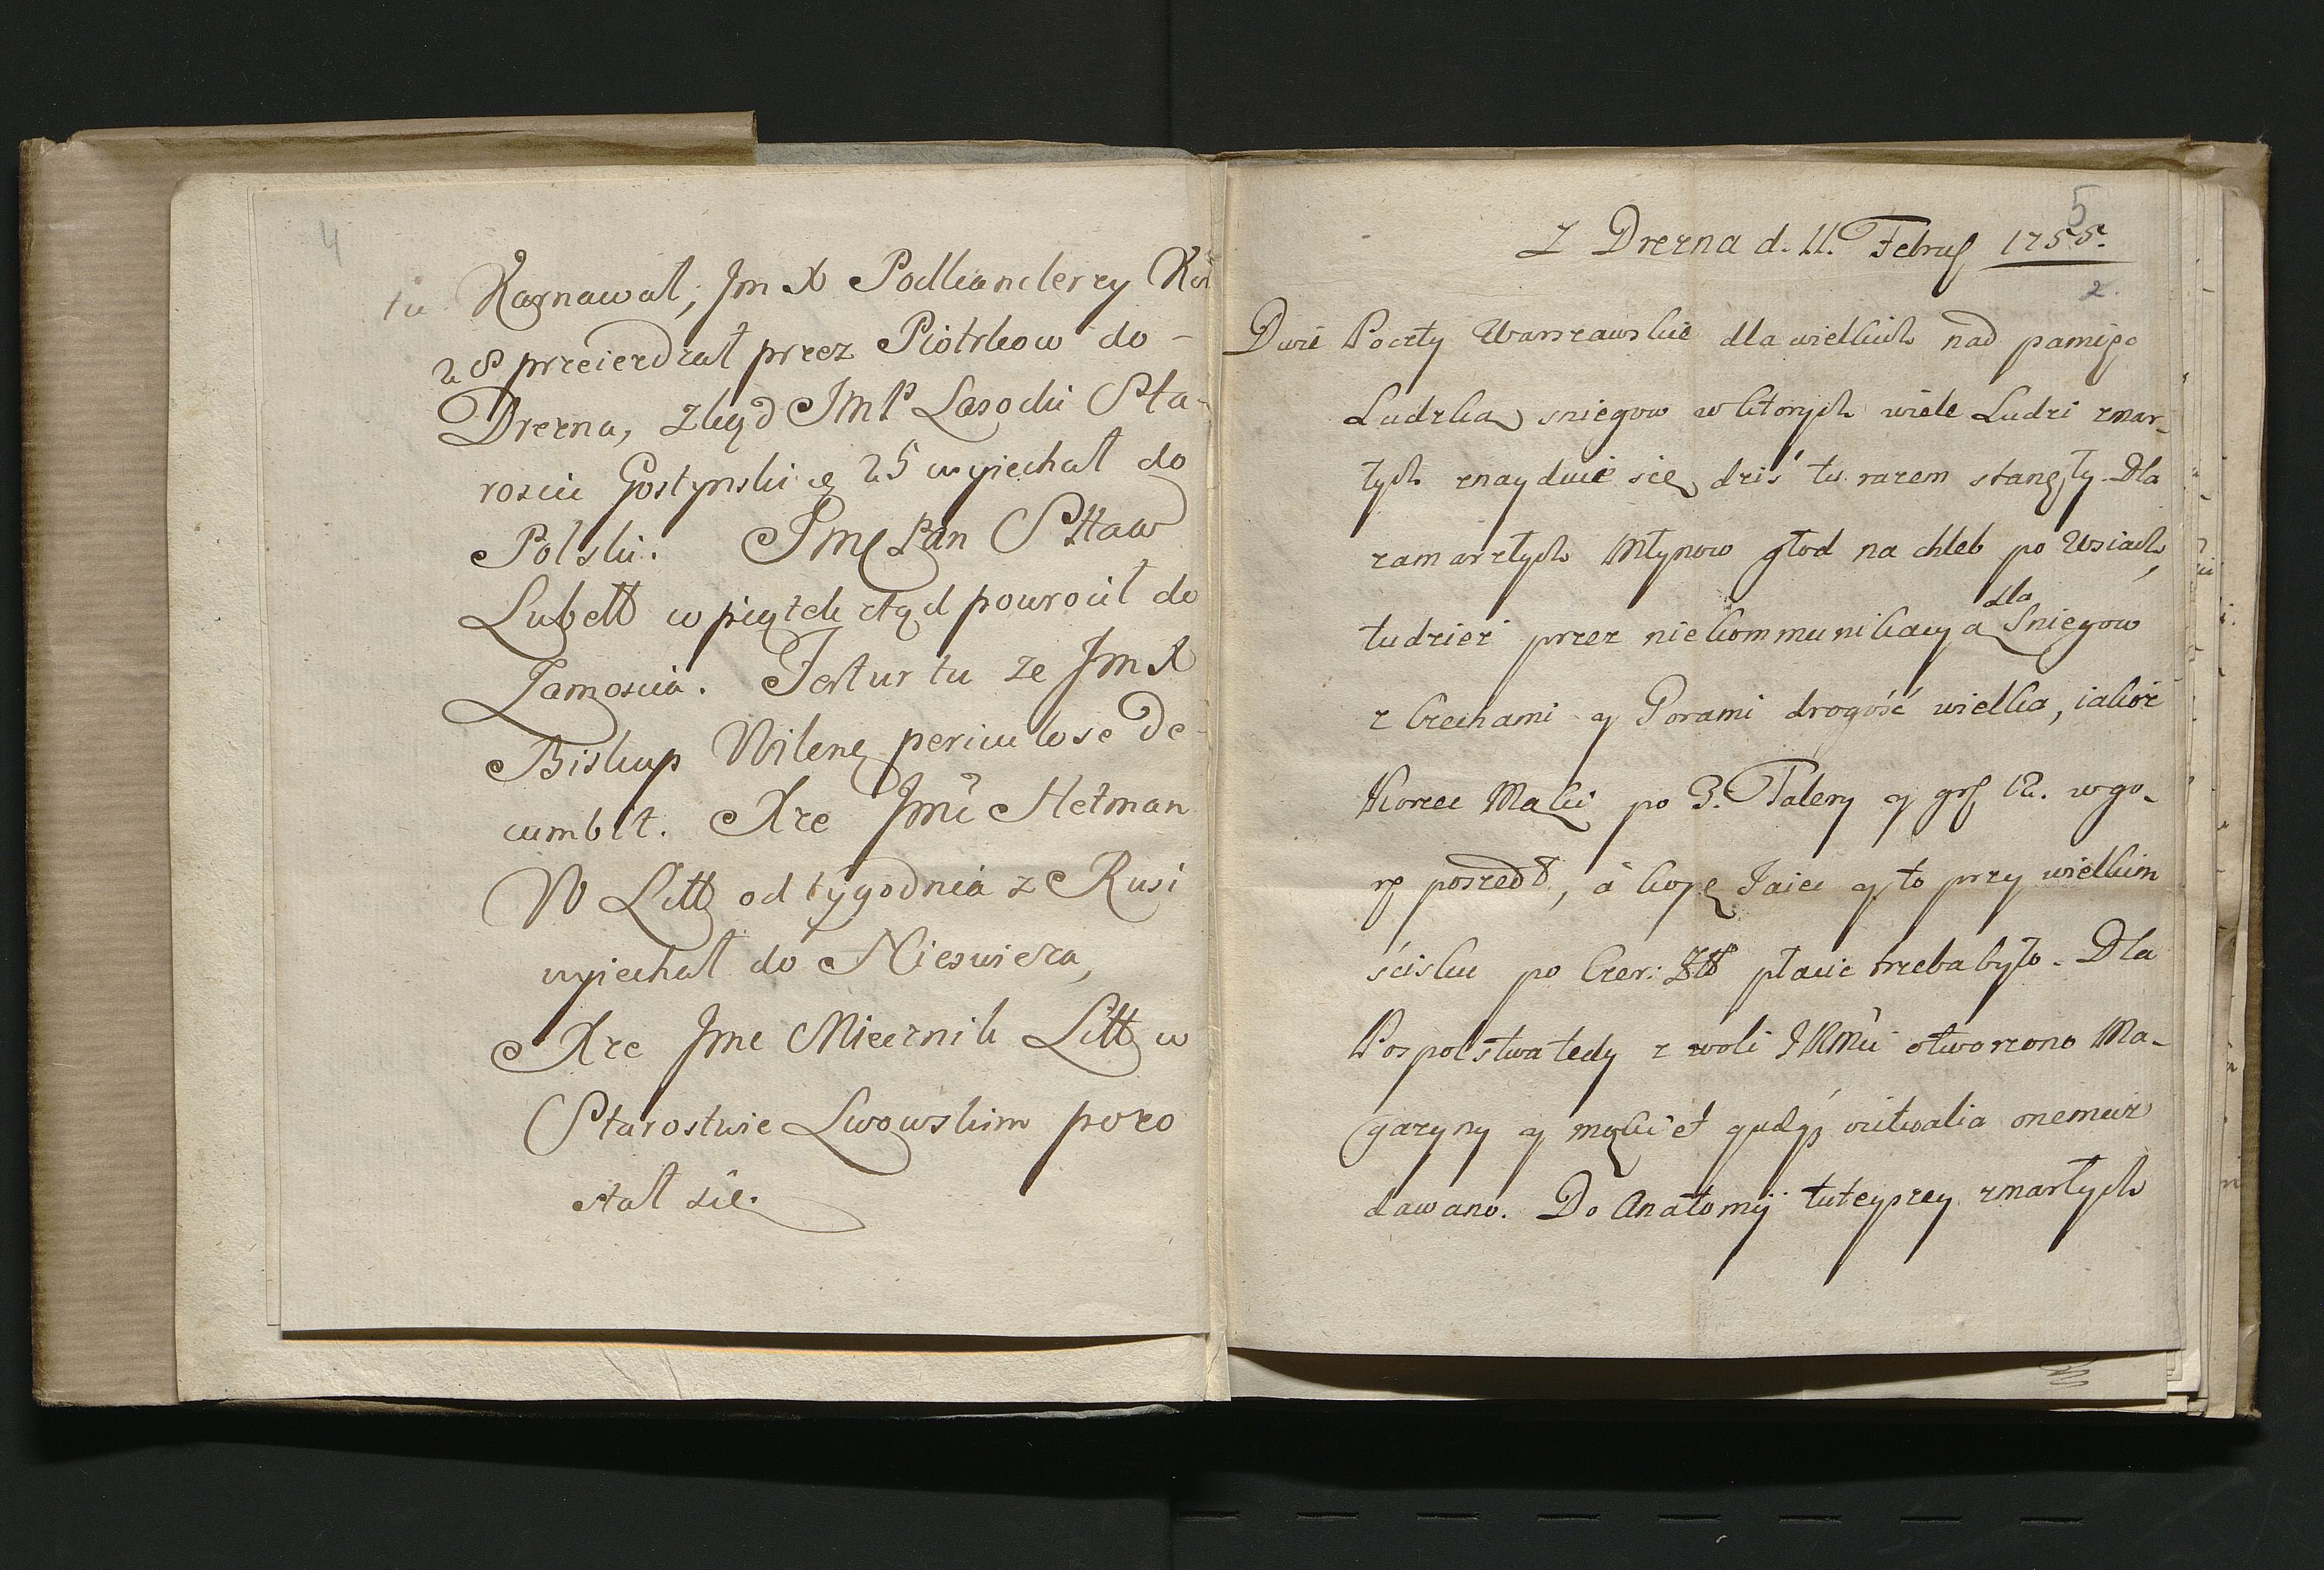 4
tu Karnawał, Jm X Podkanclerzy Kor
28 przeierdzał przez Piotrkow do -
Drezna, zkąd JmP Lasocki Sta-
roscic Gostynski 25 wyiechał do
Polski. Jmę Pan Sttaw
Lubell w piątek ztąd powrocił do
Zamoscia. Fertur tu ze Jm X
Biskup Wilenę periculose de-
cumbit. Xże Jmć Hetman
W Litt od tygodnia z Rusi
wyiechał do Nieswieza,
Xże Jme Miecznik Litt w
Starostwie Lwowskim pozo
stał sie.
5
Z Drezna d. 11. Februę 1755.
2.
Dwie Poczty Warszawskie dla wielkich nad pamięć
Ludzką sniegow w ktorych wiele Ludzi zmar-
łych znayduie się dziś tu razem stanęły. Dla
zamarzłych Młynow głod na chleb po Wsiach,
tudziesz przez niekommunikacyą dla Sniegow
z Czechami y Gorami drogość wielka, iakoż
Korzec Mąki po 3. Talery y grę 12. w go-
rę poszedł, á kopę Jaiec y to przy wielkim
ścisku po Czer: Złł płacić trzeba było. Dla
Pospolstwa tedy z woli JKMci otworzono Ma-
gazyny y mąki et quidq; victualia onemuż
dawano. Do Anatomij tuteyszey zmarłych